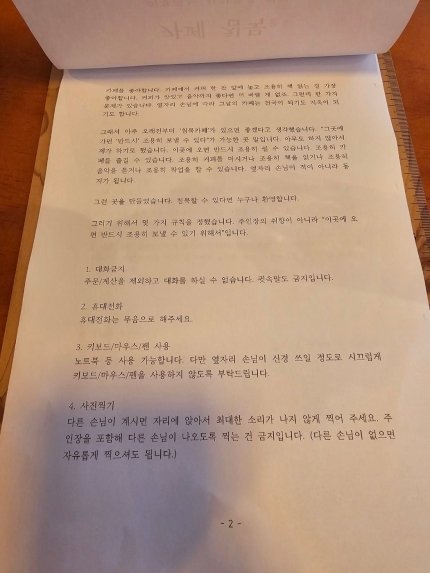 카페 침묵
카페를 좋아합니다. 카페에서 커피 한 잔 앞에 놓고 조용히 책 읽는 걸 가장
좋아합니다. 커피가 맛있고 음악까지 좋다면 더 바랄 게 없죠. 그런데 한 가지
문제가 있습니다. 옆자리 손님에 따라 그날의 카페는 천국이 되기도 지옥이 되
기도 합니다.
그래서 아주 오래전부터 '침묵카페'가 있으면 좋겠다고 생각했습니다. "그곳에
가면 '반드시' 조용히 보낼 수 있다"가 가능한 곳 말입니다. 아무도 하지 않아서
제가 하기로 했습니다. 이곳에 오면 반드시 조용히 쉴 수 있습니다. 조용히 카
페를 즐길 수 있습니다. 조용히 커피를 마시거나 조용히 책을 읽거나 조용히
음악을 듣거나 조용히 작업을 할 수 있습니다. 옆자리 손님이 적이 아니라 동
지가 됩니다.
그런 곳을 만들었습니다. 침묵할 수 있다면 누구나 환영합니다.
그러기 위해서 몇 가지 규칙을 정했습니다. 주인장의 취향이 아니라 "이곳에 오
면 반드시 조용히 보낼 수 있기 위해서"입니다.
1. 대화금지
주문/계산을 제외하고 대화를 하실 수 없습니다. 귓속말도 금지입니다.
2. 휴대전화
휴대전화는 무음으로 해주세요.
3. 키보드/마우스/펜 사용
노트북 등 사용 가능합니다. 다만 옆자리 손님이 신경 쓰일 정도로 시끄럽게
키보드/마우스/펜을 사용하지 않도록 부탁드립니다.
4. 사진찍기
다른 손님이 계시면 자리에 앉아서 최대한 소리가 나지 않게 찍어 주세요. 주
인장을 포함해 다른 손님이 나오도록 찍는 건 금지입니다. (다른 손님이 없으면
자유롭게 찍으셔도 됩니다.)
- 2 -